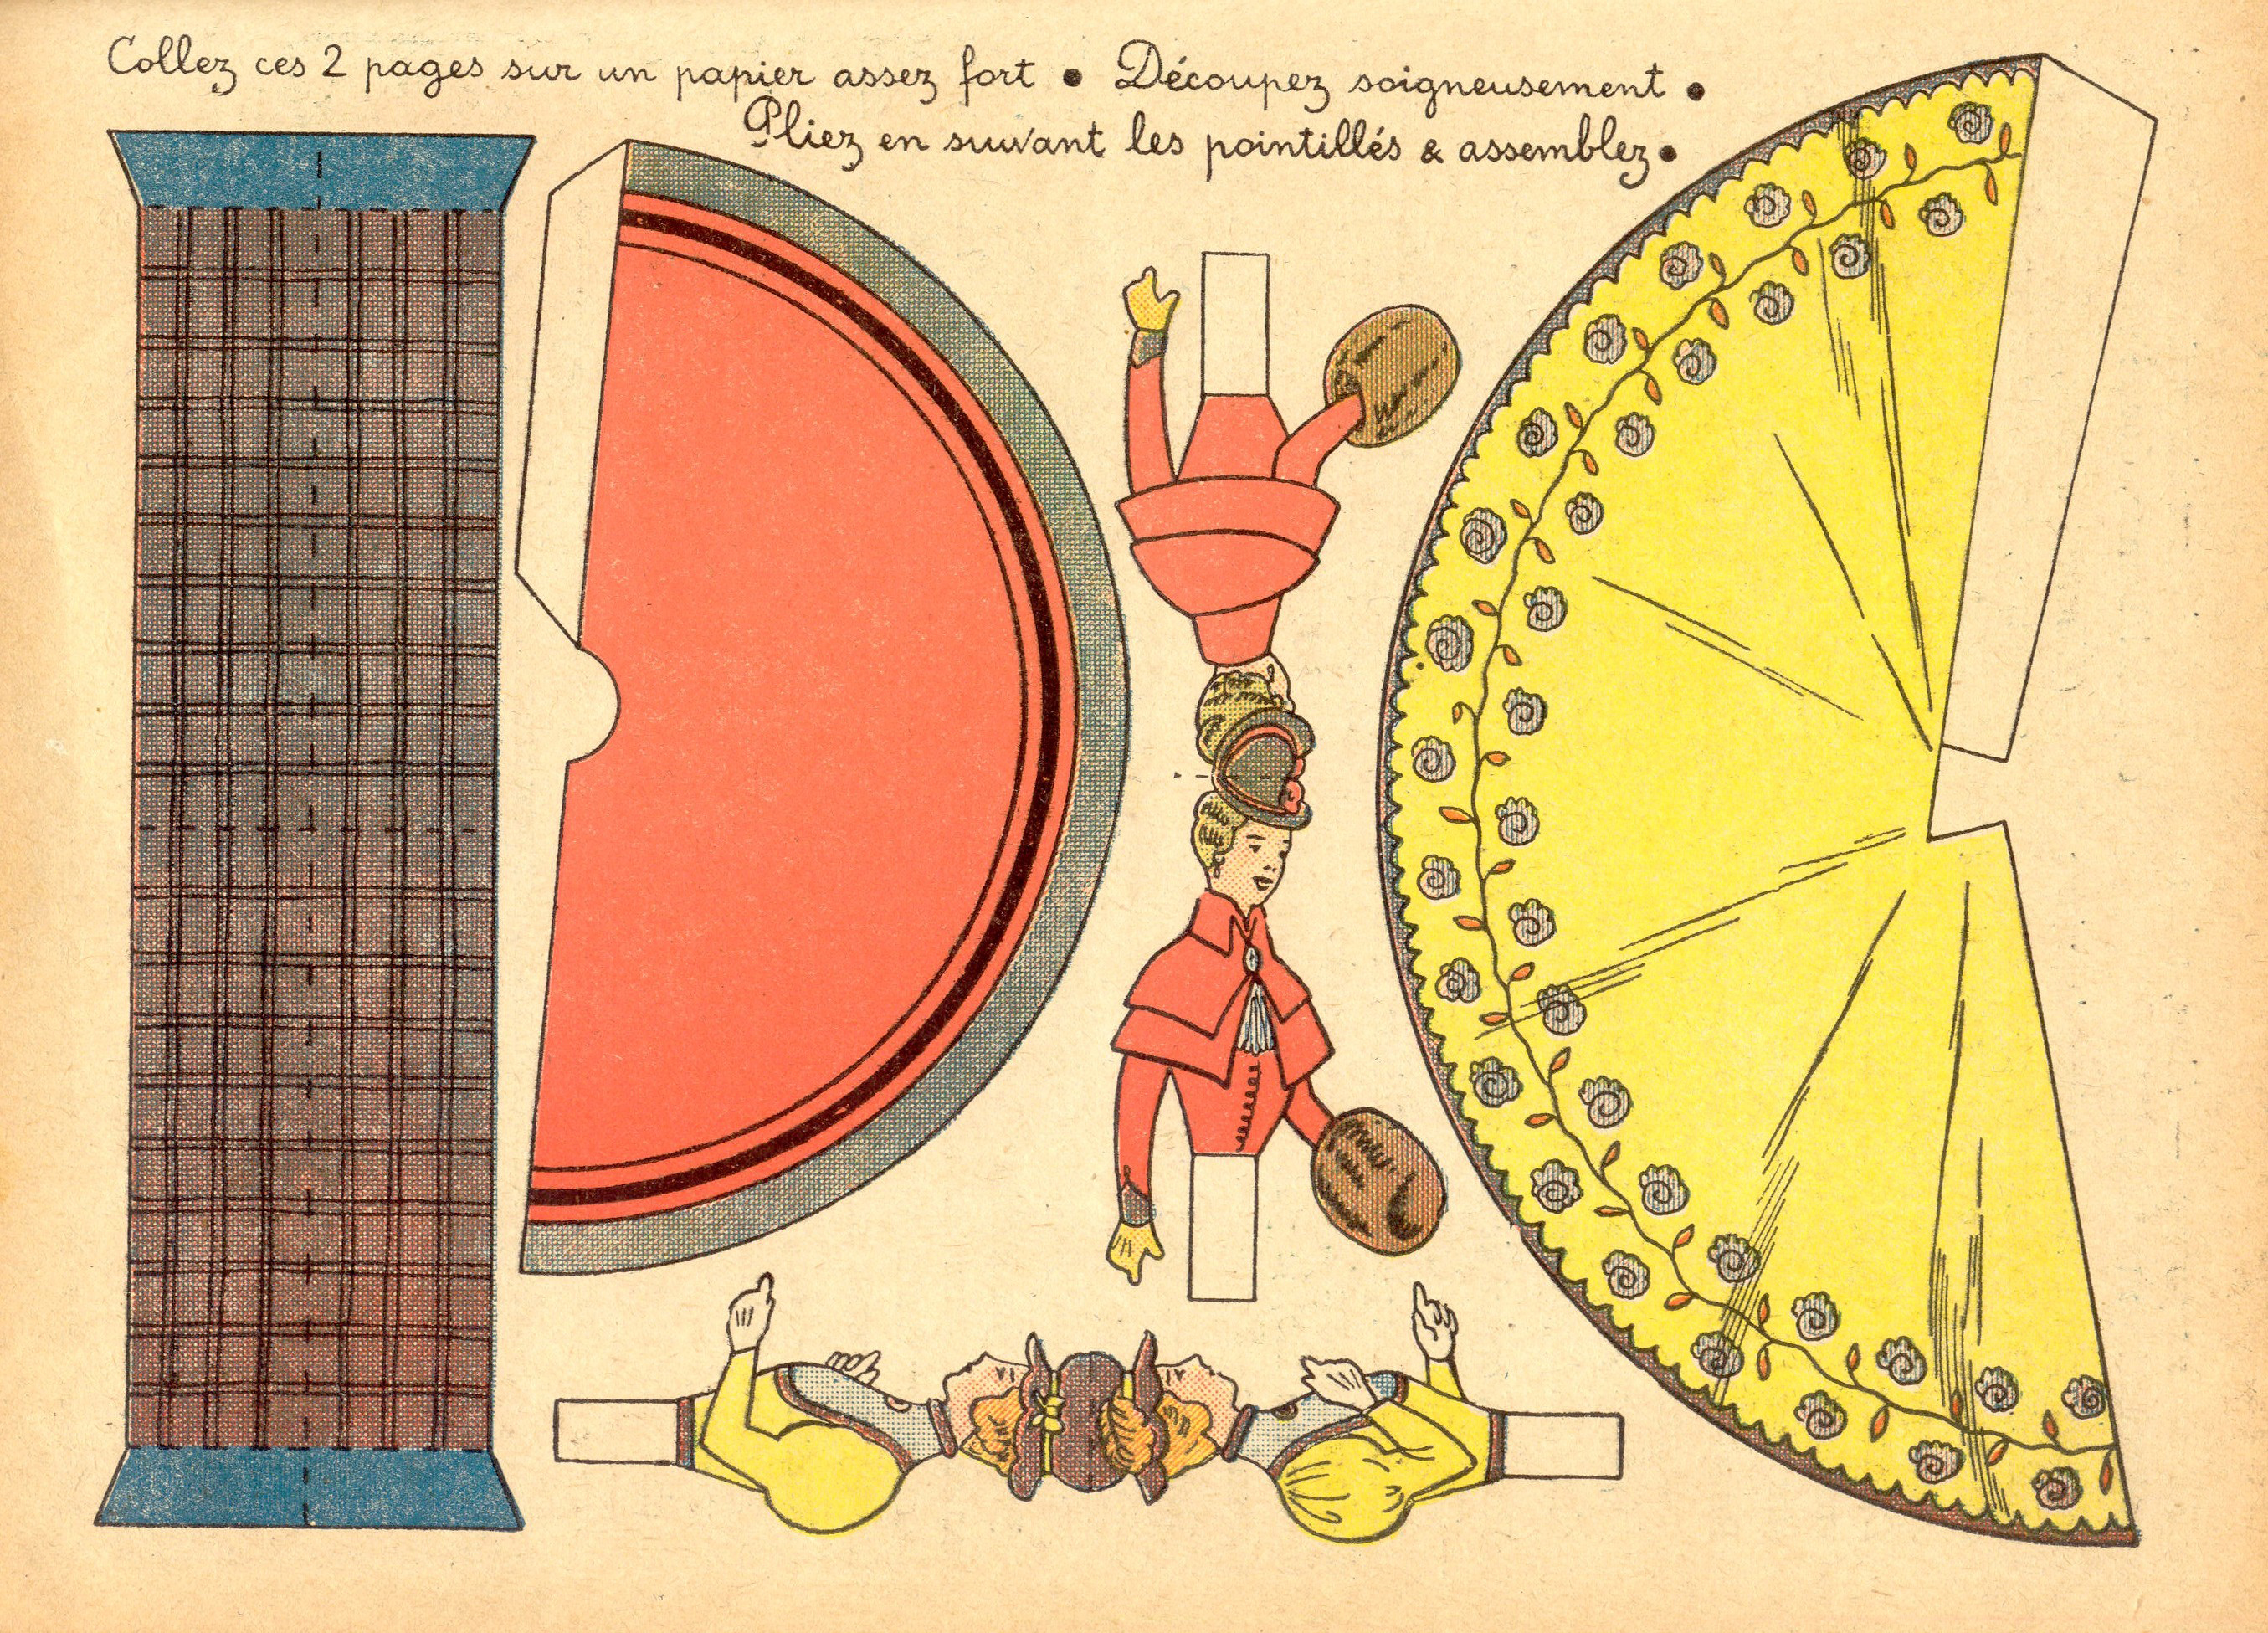 Collez ces 2 pages sur un papier assez fort • Découpez soigneusement •
Pliez en suivant les pointillés & assemblez •